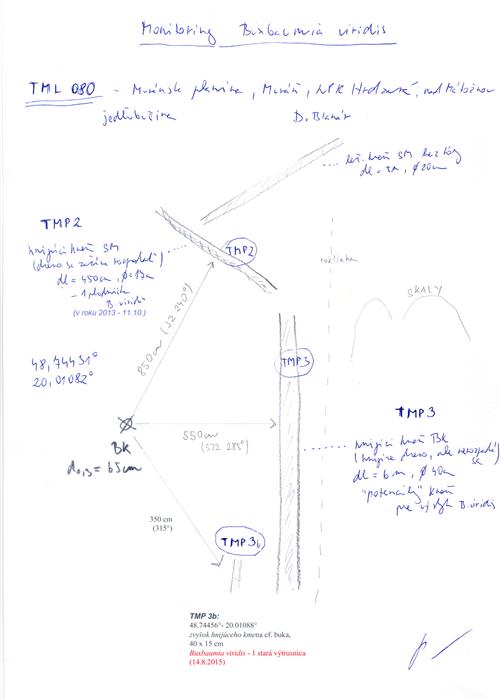 Monitoring Buxbaumia viridis
TML 080 - Muránska planina, Muráň, NPR Hrdzavá, nad
jedľobučina
D. Blanár
lež. kmeň SM bez kôry
dl = 7m, ø 20cm
TMP2
hnijúci kmeň SM
(drevo sa začína rozpadať)
dl = 450cm, ø = 17cm
- 1 plodnička
B. viridis
(v roku 2013 - 11.10.)
TMP2
850cm (JZ 240°)
roklinka
SKALY
48,74431°
20,01082°
TMP3
TMP3
550cm
(SZZ 285°)
BK
d₀,₁₃ = 65cm
hnijúci kmeň BK
(hnijúce drevo, ale nerozpadá sa)
dl = 6m, ø 40cm
"potenciálny" kmeň
pre výskyt B. viridis
350 cm
(315°)
TMP3b
TMP 3b:
48.74456°- 20.01088°
zvyšok hnijúceho kmena cf. buka,
40 x 15 cm
Buxbaumia viridis - 1 stará výtrusnica
(14.8.2015)